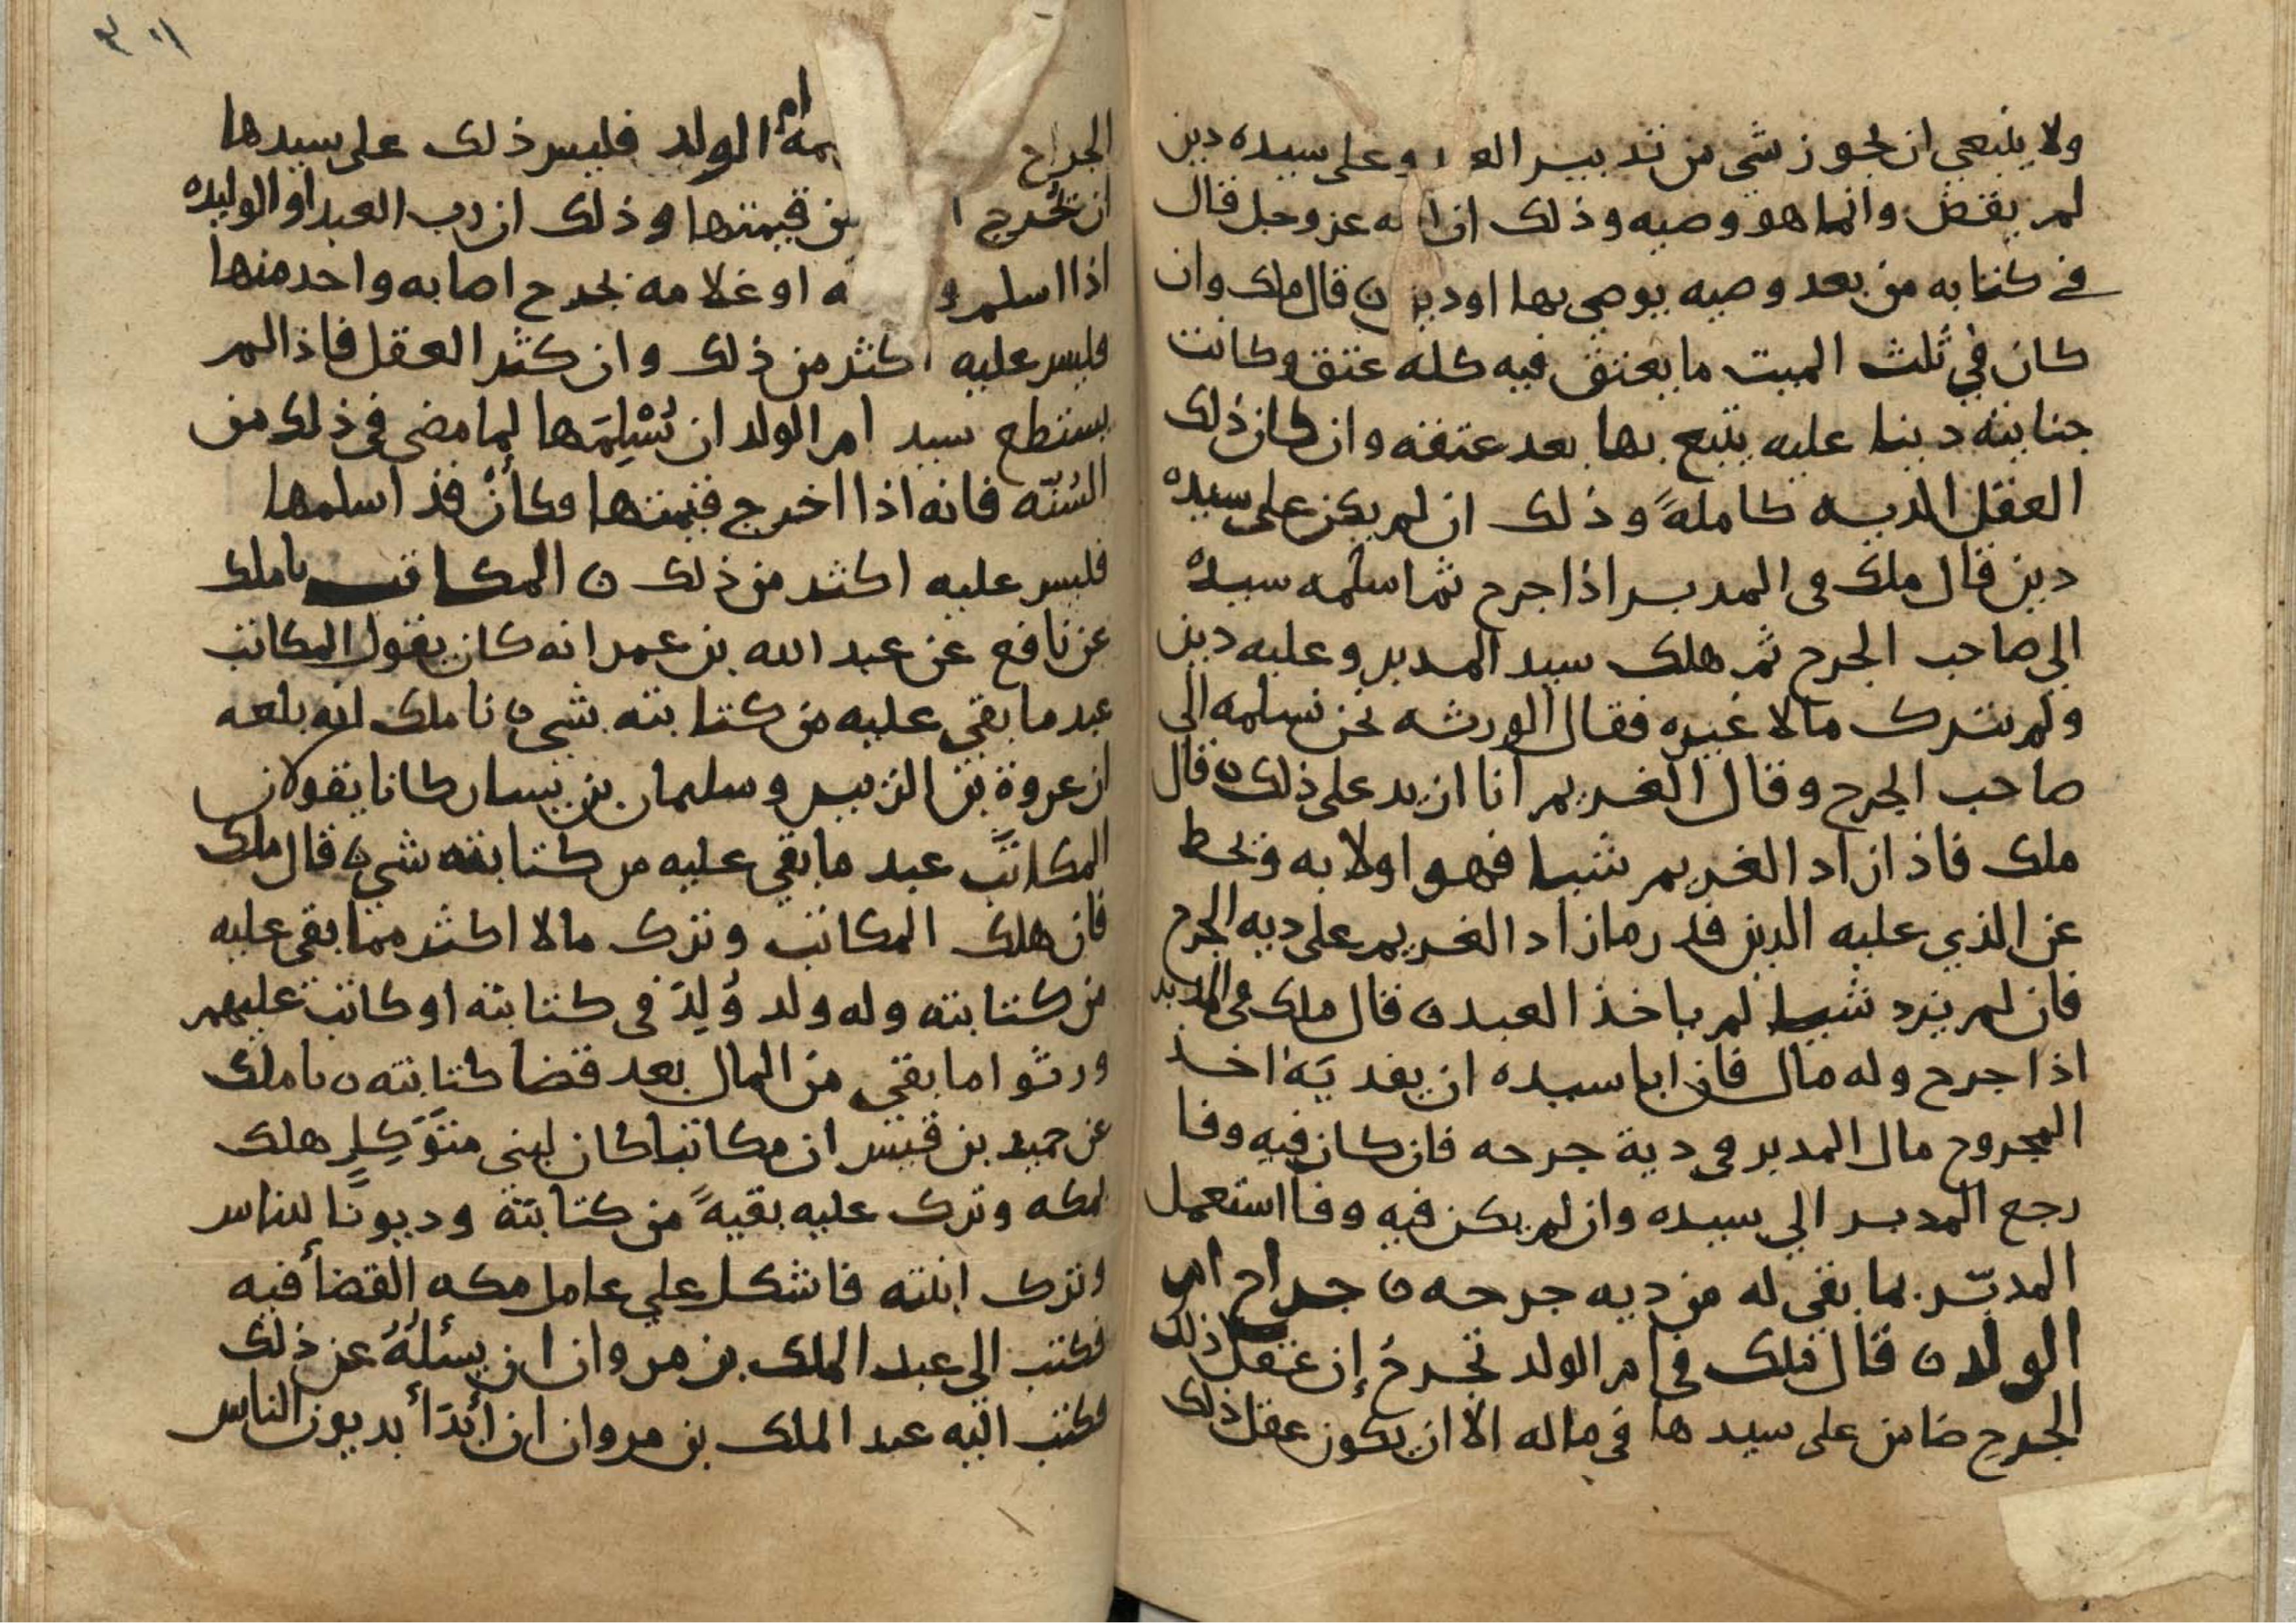 ولا ينبغي ان يجوز شي من تدبير العـ وعلى سيده دين
لم يقض وانما هو وصيه وذلك ان الله عز وجل قال
في كتابه من بعد وصيه يوصى بها او دين ن قال ملك وان
كان في ثلث الميت ما يعتق فيه كله عتق وكانت
جنايته دينا عليه يتبع بها بعد عتقه وان كان ذلك
العقل الديه كاملةً وذلك ان لم يكن على سيده
دين قال ملك في المدبر اذا جرح ثم اسلمه سيده
الي صاحب الجرح ثم هلك سيد المدبر وعليه دين
ولم يترك مالا غيره فقال الورثه نحن نسلمه الي
صاحب الجرح وقال الغريم انا ازيد على ذلك ن قال
ملك فاذا زاد الغريم شيا فهو اولا به ويحط
عن الذي عليه الدين قدر ما زاد الغريم على ديه الجرح
فان لم يزد شيا لم ياخذ العبد ن قال ملك في المدبر
اذا جرح وله مال فان ابا سيده ان يفديَهُ اخذ
المجروح مال المدبر في دية جرحه فان كان فيه وفا
رجع المدبر الي سيده وان لم يكن فيه وفا استعمل
المدبّر بما بقي له من ديه جرحه ن جراح ام
الولد ن قال ملك في ام الولد تجرحُ إن عقل ذلك
الجرح ضامن على سيدها في ماله الا ان يكون عقل ذلك
٣٠١
الجراح ـيمه ام الولد فليس ذلك على سيدها
ان يُخرج ا من قيمتها وذلك ان رب العبد او الوليده
اذا اسلم و ـه او غلامه بجرح اصابه واحد منها
فليس عليه اكثر من ذلك وان كثر العقل فاذا لم
يستطع سيد ام الولد ان يُسْلِمَها لِما مضى في ذلك من
السُنّه فانه اذا اخرج قيمتها فكأنْ قد اسلمها
فليس عليه اكثر من ذلك ن المكاتب نا ملك
عن نافع عن عبد الله بن عمر انه كان يقول المكاتب
عبد ما بقي عليه من كتابته شي ن نا ملك انه بلغه
ان عروة بن الزبير وسليمان بن يسار كانا يقولان
المكاتَب عبد ما بقي عليه من كتابته شي ن قال ملك
فان هلك المكاتب وترك مالا اكثر مما بقي عليه
من كتابته وله ولد وُلِدَ في كتابته او كاتب عليهم
ورثوا ما بقي من المال بعد قضا كتابته ن نا ملك
عن حميد بن قيس ان مكاتبا كان لبني متَوَكِلٍ هلك
بمكه وترك عليه بقيةً من كتابته وديونًا للناس
وترك ابنته فاشكل علي عامل مكه القضأ فيه
فكتب الي عبد الملك بن مروان ان يسئلُهُ عن ذلك
فكتب اليه عبد الملك بن مروان ان أبدَأ بديون الناس